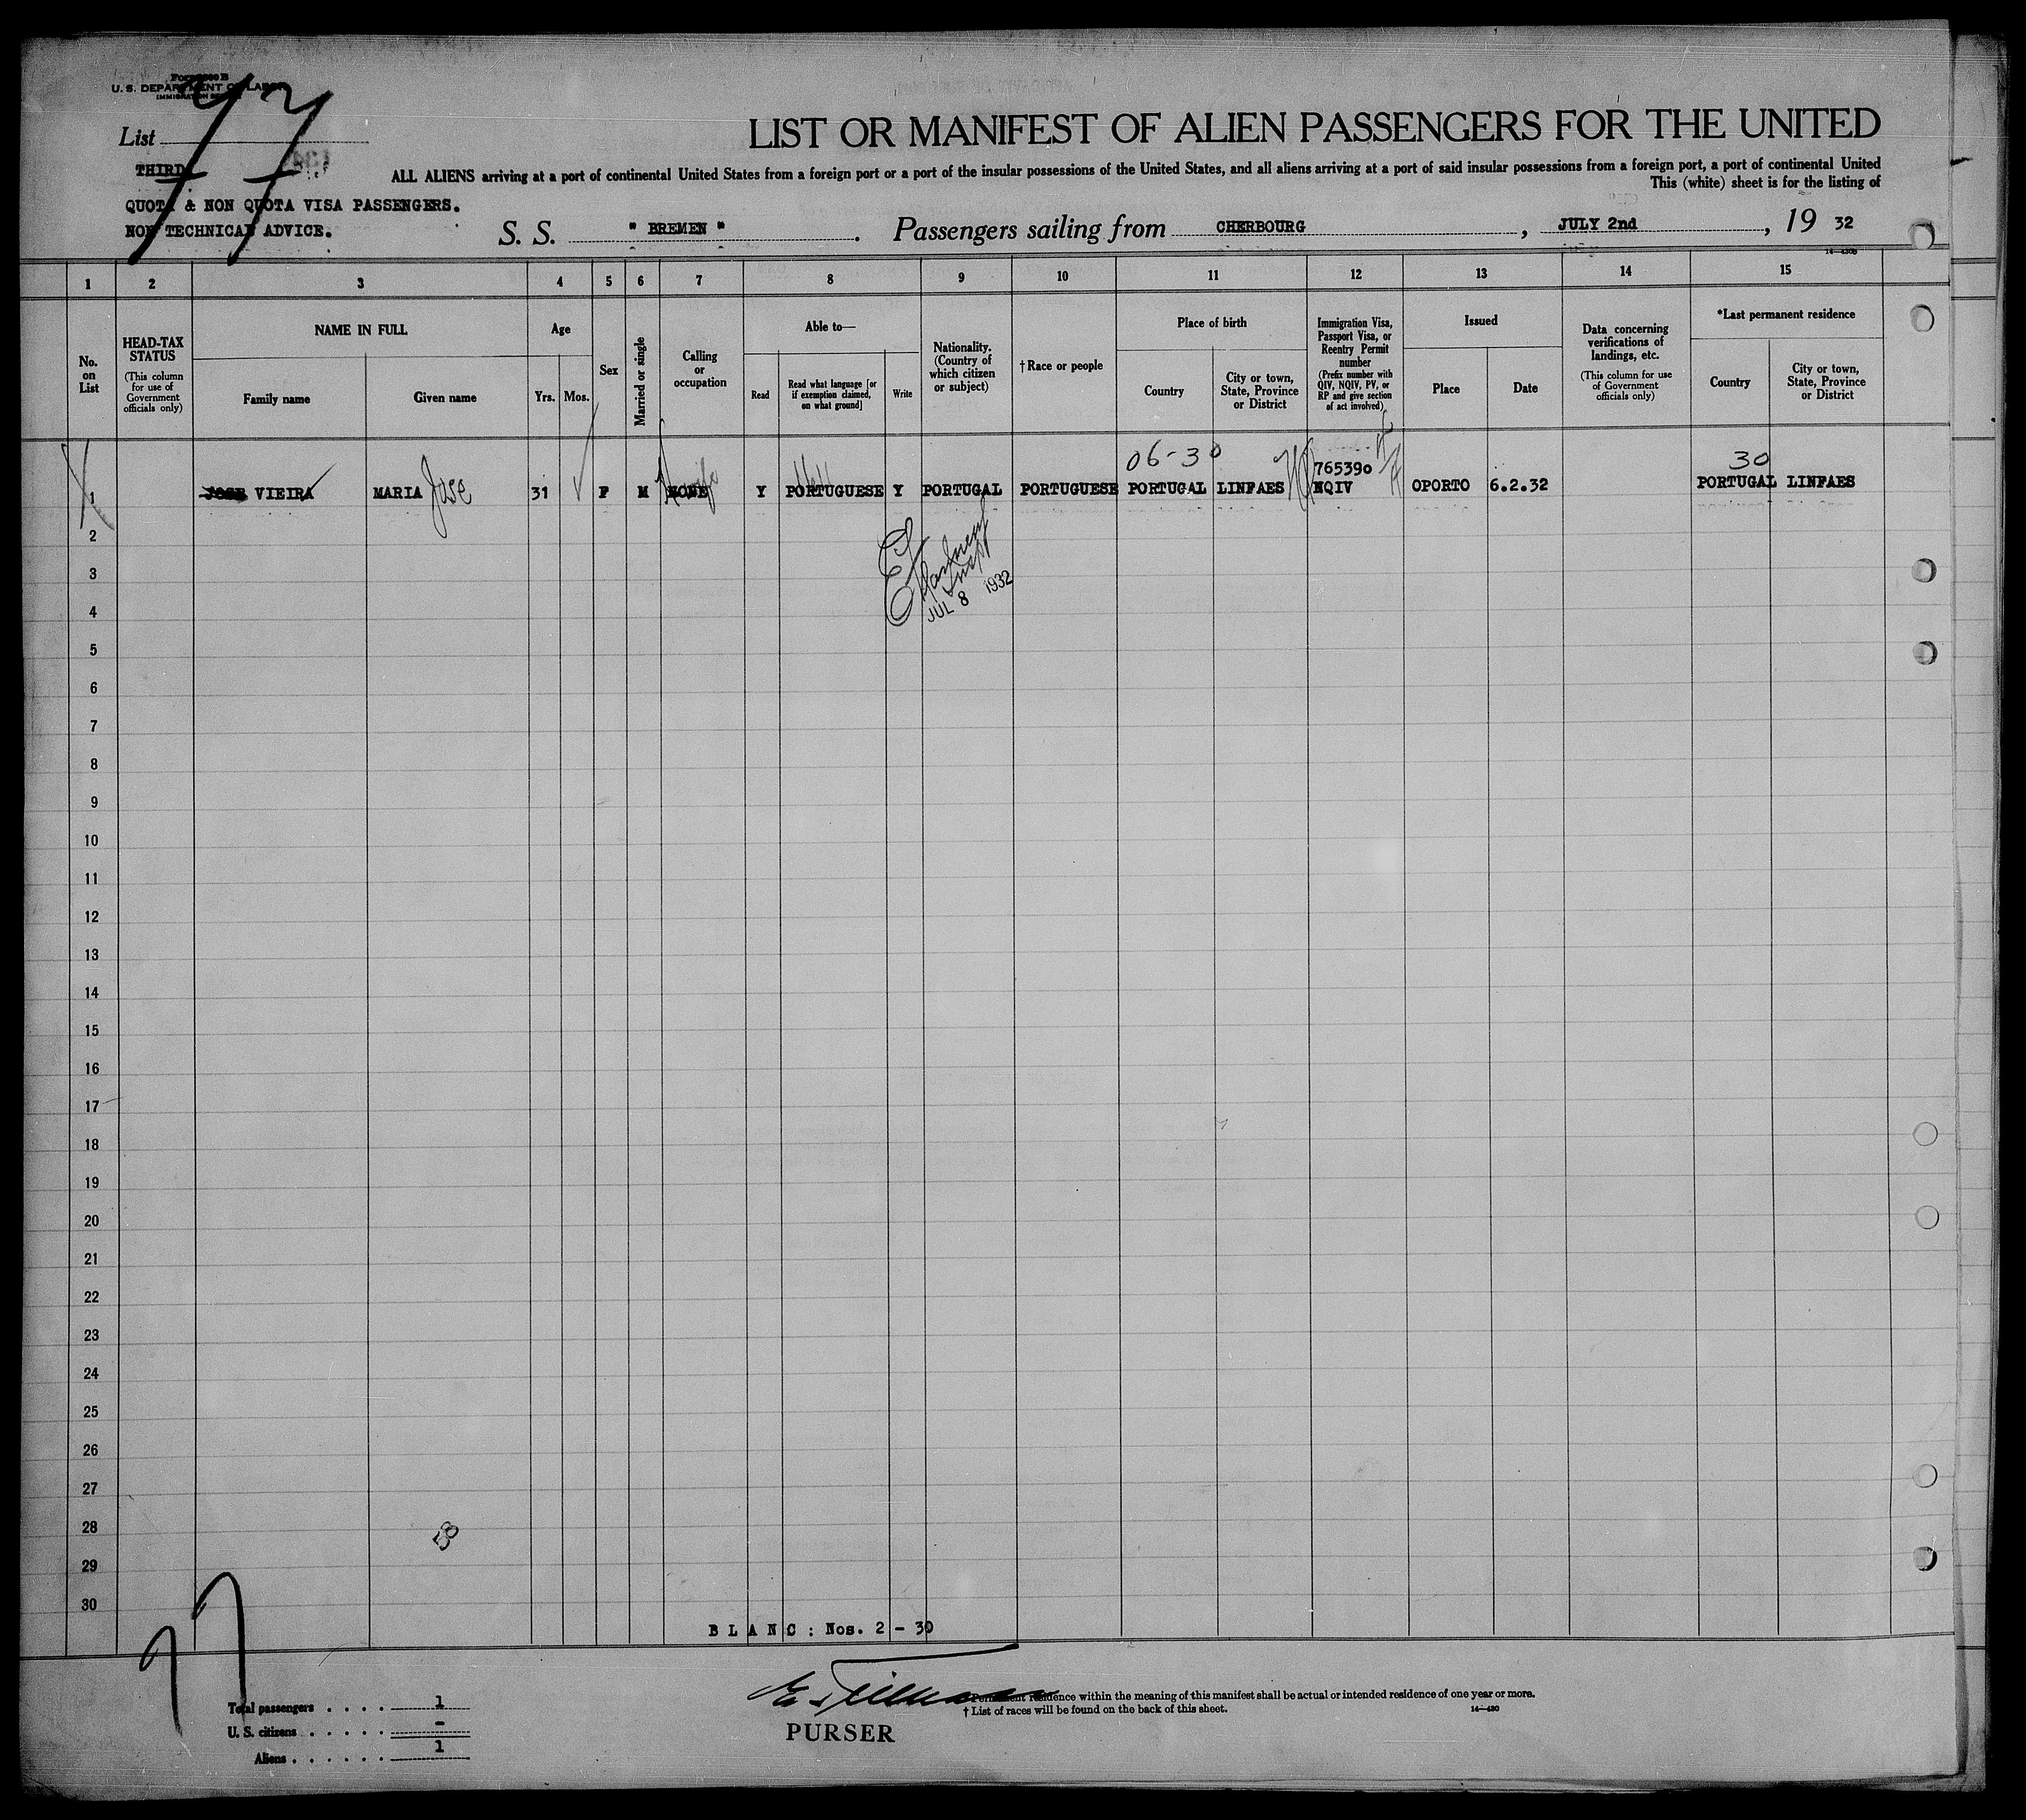 U. S. DEPARTMENT OF LABOR
77
List
THIRD
QUOTA & NON QUOTA VISA PASSENGERS.
NON TECHNICAL ADVICE.
LIST OR MANIFEST OF ALIEN PASSENGERS FOR THE UNITED
ALL ALIENS arriving at a port of continental United States from a foreign port or a port of the insular possessions of the United States, and all aliens arriving at a port of said insular possessions from a foreign port, a port of continental United
This (white) sheet is for the listing of
S. S. " BREMEN ". Passengers sailing from CHERBOURG, JULY 2nd, 19 32
1 2 3 4 5 6 7 8 9 10 11 12 13 14 15
No. on List
HEAD-TAX STATUS (This column for use of Government officials only)
NAME IN FULL
Family name
Given name
Age
Yrs.
Mos.
Sex
Married or single
Calling or occupation
Able to—
Read
Read what language [or if exemption claimed, on what ground]
Write
Nationality. (Country of which citizen or subject)
†Race or people
Place of birth
Country
City or town, State, Province or District
Immigration Visa, Passport Visa, or Reentry Permit number (Prefix number with QIV, NQIV, PV, or RP and give section of act involved)
Issued
Place
Date
Data concerning verifications of landings, etc. (This column for use of Government officials only)
*Last permanent residence
Country
City or town, State, Province or District
06-30
30
765390
1 JOSE VIEIRA MARIA Jose 31 F M NONE Y PORTUGUESE Y PORTUGAL PORTUGUESE PORTUGAL LINFAES NQIV OPORTO 6.2.32 PORTUGAL LINFAES
JUL 8 1932
2
3
4
5
6
7
8
9
10
11
12
13
14
15
16
17
18
19
20
21
22
23
24
25
26
27
28
29
30
BLANC: Nos. 2 - 30
Total passengers . . . . 1
U. S. citizens . . . . . -
Aliens . . . . . . 1
PURSER
Permanent residence within the meaning of this manifest shall be actual or intended residence of one year or more.
† List of races will be found on the back of this sheet.
14—430